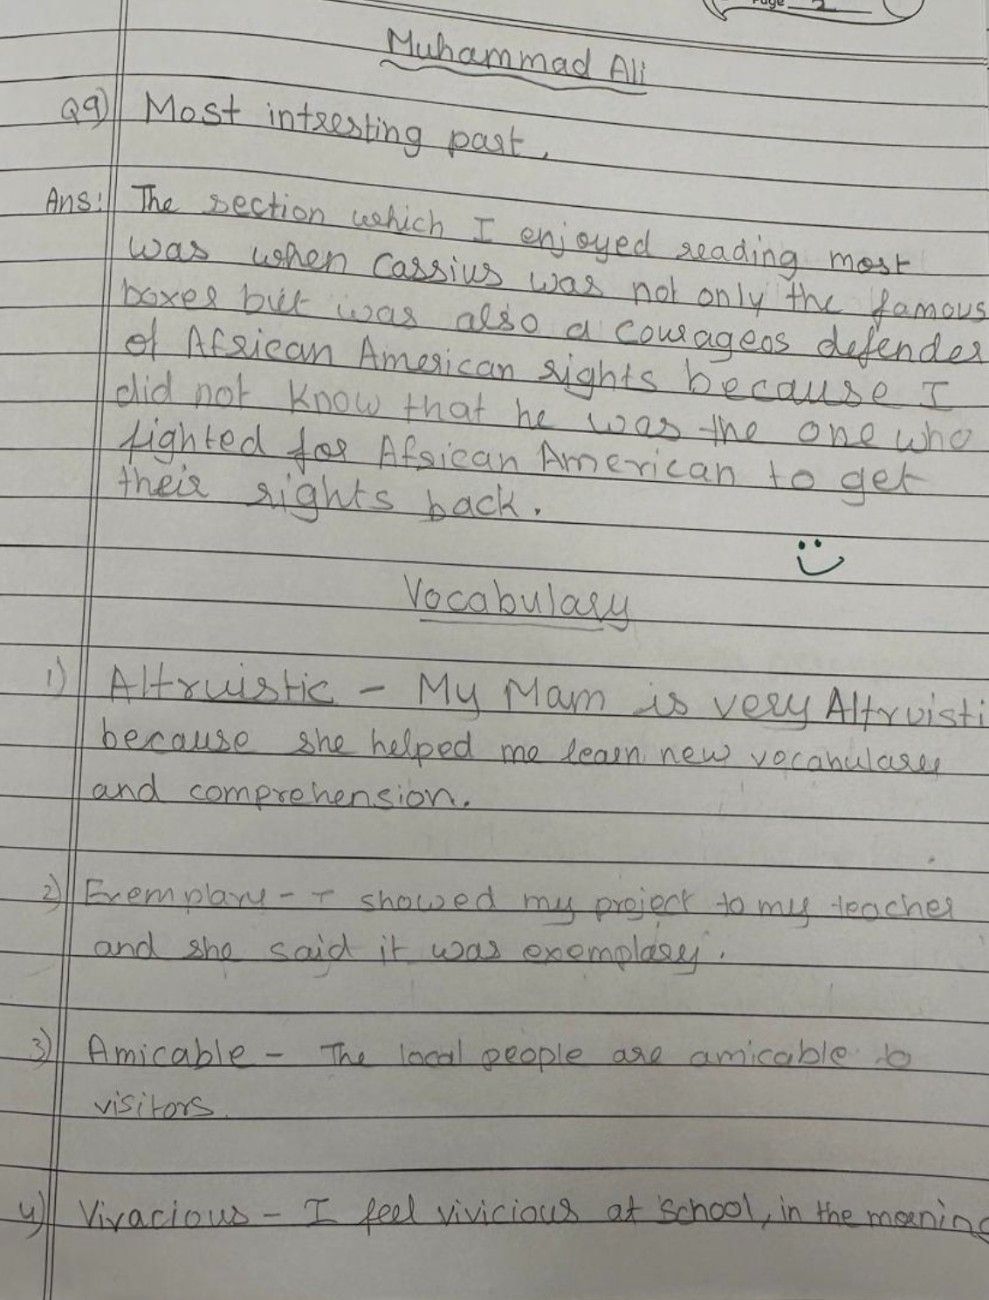 Page 2
Muhammad Ali
Q9) Most intresting part.
Ans: The section which I enjoyed reading most
was when Cassius was not only the famous
boxer but was also a courageos defender
of African American rights because I
did not know that he was the one who
fighted for African American to get
their rights back.
Vocabulary
1) Altruistic - My Mam is very Altruisti
because she helped me learn new vocabulary
and comprehension.
2) Exemplary - I showed my project to my teacher
and she said it was exemplary.
3) Amicable - The local people are amicable to
visitors.
4) Vivacious - I feel vivicious at school, in the morning